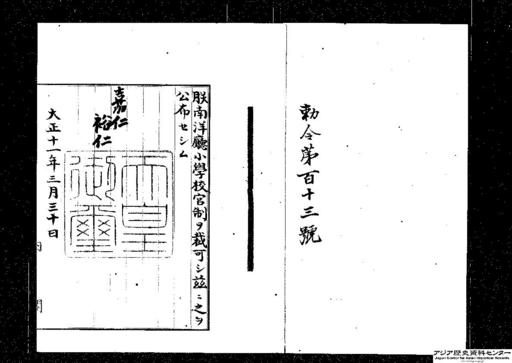 勅令第百十三號
朕南洋廳小學校官制ヲ裁可シ茲ニ之ヲ
公布セシム
嘉仁
裕仁
天皇
御璽
大正十一年三月三十日
内閣
アジア歴史資料センター
Japan Center for Asian Historical Records